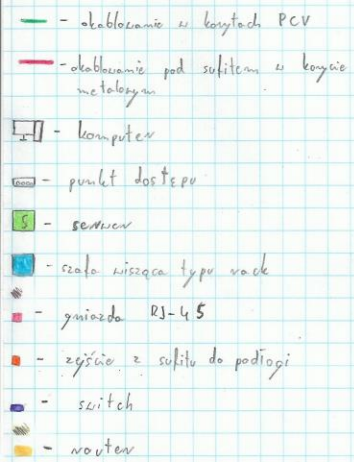 - okablowanie w korytach PCV
- okablowanie pod sufitem w korycie
metalowym
- komputer
- punkt dostępu
S - serwer
- szafa wisząca typu rack
- gniazda RJ-45
- zejście z sufitu do podłogi
- switch
- router